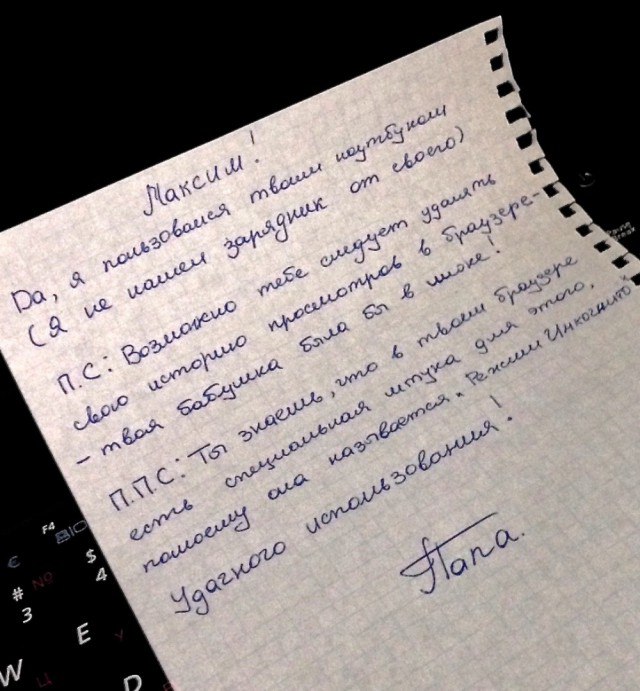 Максим!
Да, я пользовался твоим ноутбуком
(я не нашел зарядник от своего)
П.С: Возможно тебе следует удалять
свою историю просмотров в браузере-
- твоя бабушка была бы в шоке!
П.П.С: Ты знаешь, что в твоем браузере
есть специальная штука для этого,
помоему она называется "Режим Инкогнито"
Удачного использования!
Папа.
F4
€
$
4
#
3
E
У
W
Ц
D